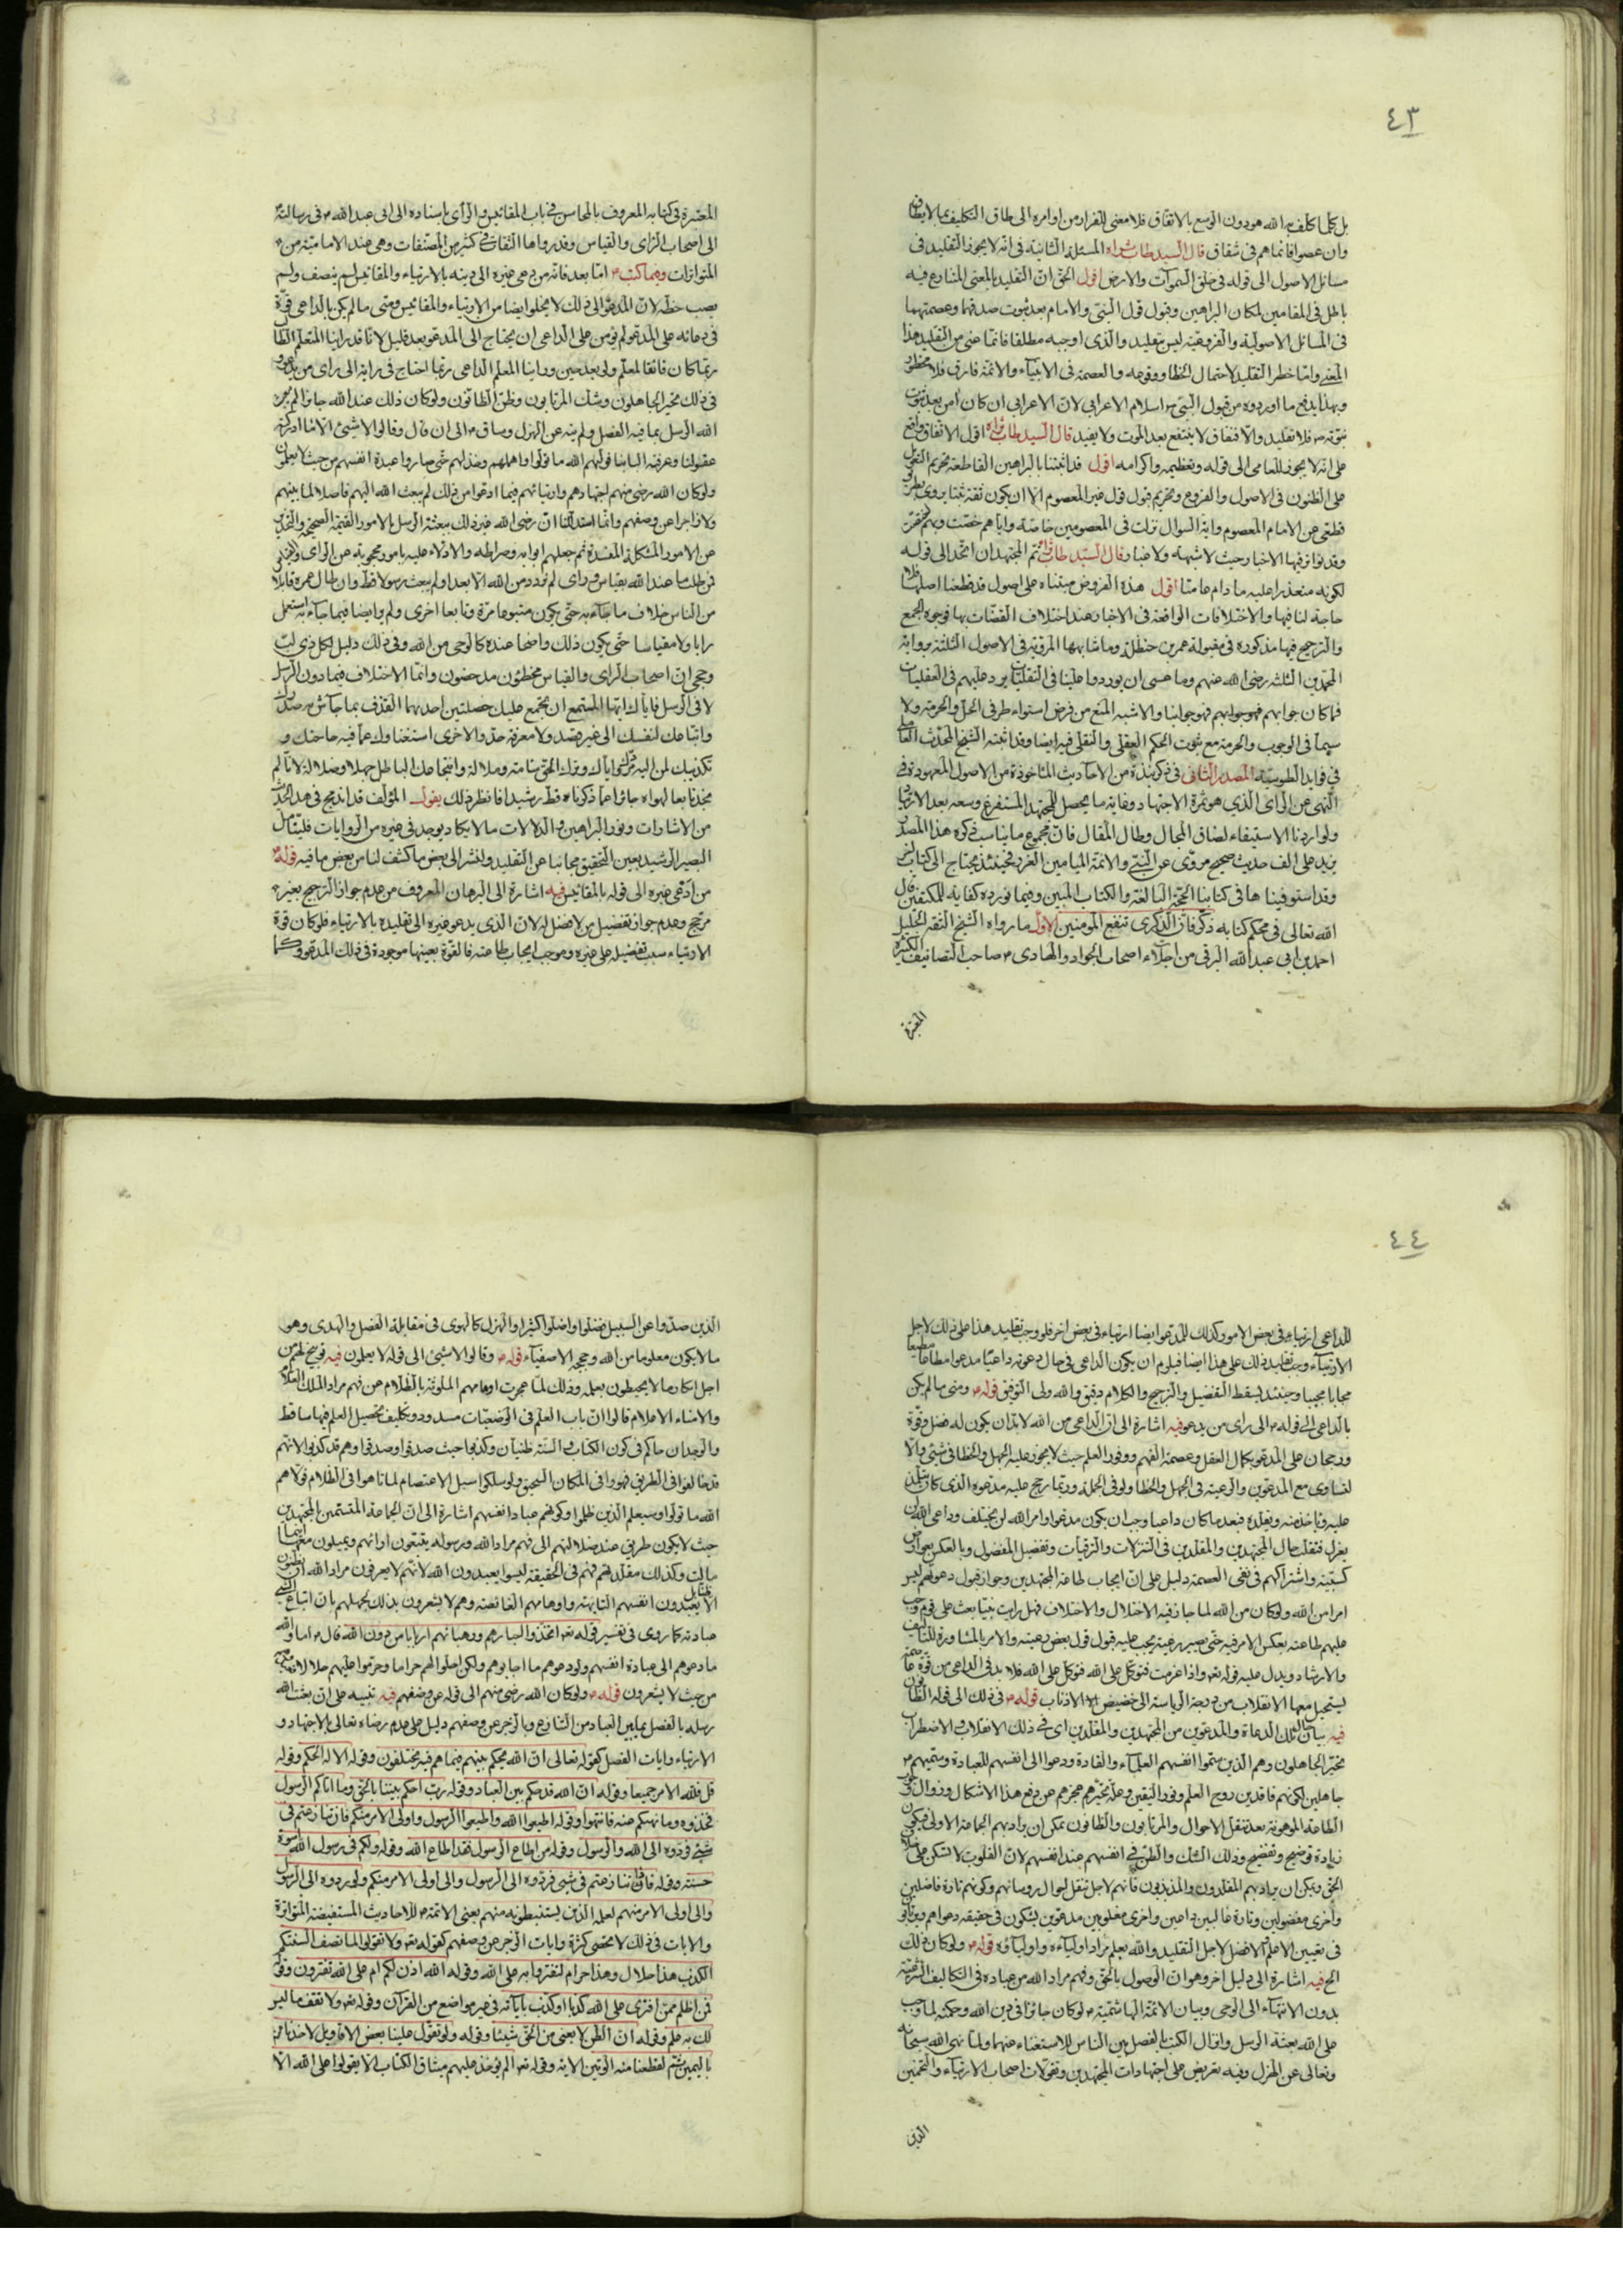 ٤٣
بل كلما كلف به الله هو دون الوسع بالاتفاق فلا معنى للفرار من اوامره الى طاق التكليف بما لا يطاق
وان عصوا فانما هم في شقاق قال السيد طاب ثراه المسئلة الثانية في انه لا يجوز التقليد في
مسائل الاصول الى قوله في خلق السموات والارض اقول الحق ان التقليد بالمعنى المتنازع فيه
باطل في المقامين لمكان البراهين وقبول قول النبي والامام بعد ثبوت صدقهما وعصمتهما
في المسائل الاصولية والفروعية ليس بتقليد والذي اوجبه مطلقا فانما عنى من التقليد هذا
المعنى وانما خطر التقليد لاحتمال الخطا ووقوعه والعصمة في الانبياء والائمة فارق فلا محظور
وبهذا يدفع ما اوردوه من قبول النبي ص اسلام الاعرابي لان الاعرابي ان كان امن بعد ثبوت
نبوته ص فلا تقليد والا فنفاق لا ينتفع بعد الموت ولا يفيد قال السيد طاب ثراه اقول الاتفاق واقع
على انه لا يجوز للعامي الى قوله وتعظيمه واكرامه اقول قد اثبتنا بالبراهين القاطعة تحريم التعويل
على الظنون في الاصول والفروع وتحريم قبول قول غير المعصوم الا ان يكون ثقة ثبتا يروى بطريق
قطعي عن الامام المعصوم واية السوال نزلت في المعصومين خاصة واياهم خصت وبهم تحقق
وقد تواتر فيها الاخبار حيث لا شبهة ولا غبار قال السيد طاب ثراه ثم المجتهدان اتحد الى قوله
لكونه متعذرا عليه مادام عاميا اقول هذه الفروض مبتناه على اصول قد قطعنا اصلها فلا
حاجة لنا فيها والاختلافات الواقعة في الاخبار عند اختلاف الثقات بها فوجوه الجمع
والترجيح فيها مذكوره في مقبولة عمر بن حنظلة وما شابهها المروية في الاصول الثلثة ورواية
المحمدين الثلثة رضي الله عنهم وما عسى ان يوردوا علينا في النقليات يرد عليهم في العقليات
فما كان جوابهم فهو جوابنا والاشبه المنع من فرض استواء طرفي الحل والحرمة ولا
سيما في الوجوب والحرمة مع ثبوت الحكم العقلي والنقلي فيه ايضا وقد اثبته الشيخ المحدث العاملي
في فوايد الطوسية المصدر الثاني في ذكر نبذة من الاحاديث الماخوذة من الاصول المعهودة في
النهي عن الراى الذي هو ثمرة الاجتهاد وغاية ما يحصل للمجتهد المستفرغ وسعه بعد الارتياد
ولو اردنا الاستيفاء لضاق المجال وطال المقال فان مجموع ما يناسب ذكره هذا المصدر
يزيد على الف حديث صحيح مروى عن النبي والائمة الميامين الغرر فحينئذ يحتاج الى كتاب اخر
وقد استوفيناها في كتابنا الحجة البالغة والكتاب المبين وفيما نورده كفاية للمكتفين قال
الله تعالى في محكم كتابه ذكر فان الذكرى تنفع المؤمنين الاول ما رواه الشيخ الثقة الجليل
احمد بن ابي عبد الله البرقي من اجلاء اصحاب الجواد والهادي ع صاحب التصانيف الكثيرة
المعتبرة
المعتبرة في كتابه المعروف بالمحاسن في باب المقائيس والراى باسناده الى ابى عبد الله ع في رسالته
الى اصحاب الراى والقياس وقد رواها الثقات في كثير من المصنفات وهي عند الامامية من
المتواترات وهما كتب ع اما بعد فانه من دعى غيره الى دينه بالارتياء والمقائيس لم ينصف ولم
يصب حظه لان المدعو الى ذلك لا يخلو ايضا من الارتياء والمقائيس ومتى ما لم يكن بالداعى قوة
في دعائه على المدعو لم يؤمن على الداعى ان يحتاج الى المدعو بعد قليل لانا قد راينا المتعلم الطالب
ربما كان فائقا لمعلم ولو بعد حين وراينا المعلم الداعى ربما احتاج في رايه الى راى من يدعو و
في ذلك تحير الجاهلون وشك المرتابون وظن الظانون ولو كان ذلك عند الله جائزا لم يبعث
الله الرسل بما فيه الفصل ولم ينه عن الهزل وساق ع الى ان قال وقالوا لا شيئ الا ما ادركته
عقولنا وعرفته البابنا فولهم الله ما تولوا واهملهم وخذلهم حتى صاروا عبدة انفسهم من حيث لا يعلمون
ولو كان الله رضى منهم اجتهادهم وارتيائهم فيما ادعوا من ذلك لم يبعث الله اليهم فاصلا لما بينهم
ولا زاجرا عن وصفهم وانما استدللنا ان رضى الله غير ذلك ببعثة الرسل بالامور القيمة الصحيحة والتحذير
عن الامور المشكلة المفسدة ثم جعلهم ابوابه وصراطه والادلاء عليه بامور محجوبة عن الراى والقياس
فمن طلب ما عند الله بقياس وراى لم يزدد من الله الا بعدا ولم يبعث رسولا قط وان طال عمره قابلا
من الناس خلاف ما جاء به حتى يكون متبوعا مرة وتابعا اخرى ولم ير ايضا فيما جاء به استعمل
رايا ولا مقياسا حتى يكون ذلك واضحا عنده كالوحى من الله وفي ذلك دليل لكل ذى لب
وحجى ان اصحاب الراى والقياس مخطئون مدحضون وانما الاختلاف فيما دون الرسل
لا في الرسل فاياك ايها المستمع ان تجمع عليك خصلتين احديهما القذف بما جاش به صدرك
واتباعك لنفسك الى غير قصد ولا معرفة حد والاخرى استغناوك عما فيه حاجتك و
تكذيبك لمن اليه مردك واياك وترك الحق سامة وملالة وانتجاعك الباطل جهلا وضلالة لانا لم
نجد تابعا لهواه جائزا عما ذكرناه قط رشيدا فانظر ذلك يقول المؤلف قد اندمج في هذ الحديث
من الاشارات ونور البراهين والدلالات ما لا يكاد يوجد في غيره من الروايات فليتامل
البصير الرشيد بعين التحقيق مجانبا عن التقليد ولنشر الى بعض ما كشف لنا من بعض ما فيه قوله ع
من ادعى غيره الى قوله بالمقائيس فيه اشارة الى البرهان المعروف من عدم جواز الترجيح بغير
مرجح وعدم جواز تفضيل من لا فضل له لان الذى يدعو غيره الى تقليده بالارتياء فلو كان قوة
الارتياء سبب تفضيله على غيره وموجب ايجاب طاعته فالقوة بعينها موجودة في ذلك المدعو وكما
٤٤
للداعى ارتياء في بعض الامور كذلك للمدعو ايضا ارتياء في بعض اخر فلو وجب تقليد هذا على ذلك لاجل
الارتياء وجب تقليد ذلك على هذا ايضا فيلزم ان يكون الداعى في حال دعوته داعيا مدعوا مطاعا مطيعا
مجابا مجيبا وحينئذ يسقط التفضيل والترجيح والكلام دقيق والله ولى التوفيق قوله ع ومتى ما لم يكن
بالداعى الى قوله ع الى راى من يدعو فيه اشارة الى ان الداعى من الله لا بد ان يكون له فضل وقوة
ورجحان على المدعو بكمال العقل وعصمة الفهم ووفور العلم حيث لا يجوز عليه الجهل والخطا في شئ والا
لتساوى مع المدعوين والرعية في الجهل والخطا ولو في الجملة وربما رجح عليه مدعوه الذى كان يتلمذ
عليه وياخذ منه ويقلده فبعد ما كان داعيا وجب ان يكون مدعوا وامر الله لن يختلف وداعى الله لن
يعزل فتقلب حال المجتهدين والمقلدين في التنزلات والترقيات وتفضيل المفضول وبالعكس بعوارض
كسبية واشتراكهم في نفى العصمة دليل على ان ايجاب طاعة المجتهدين وجواز قبول دعوتهم ليس
امرا من الله ولو كان من الله لما جاز فيه الاختلال والاختلاف فهل رايت نبيا بعث على قوم وجب
عليهم طاعته بعكس الامر فيه حتى يصير رعيته يجب عليه قبول قول بعض رعيته والامر بالمشاورة للتاليف
والارشاد ويدل عليه قوله تعالى واذا عزمت فتوكل على الله فتوكل على الله فلا بد في الداعى من قوة عاصمة
يستحيل معها الانقلاب من درجة الرياسة الى حضيض الاذناب قوله ع في ذلك الى قوله الظانون
فيه بيان حال تلك الدعاة والمدعوين من المجتهدين والمقلدين اى في ذلك الانقلاب والاضطراب
تحير الجاهلون وهم الذين سموا انفسهم العلماء والقادة ودعوا الى انفسهم للعبادة وسميهم ع
جاهلين لكونهم فاقدين روح العلم ونور اليقين وعلة تحيرهم عجزهم عن دفع هذا الاشكال وزوال
الطاعة الموهونة بعد تنقل الاحوال والمرتابون والظانون يمكن ان يراد بهم الجماعة الاولى فيكون
زيادة توضيح وتفضيح وذلك الشك والظن في انفسهم عند انفسهم لان القلوب لا تسكن على خلاف
الحق ويمكن ان يراد بهم المقلدون والمذبذبون فانهم لاجل تنقل احوال رؤسائهم وكونهم تارة فاضلين
واخرى مفضولين وتارة غالبين داعين واخرى مغلوبين مدعوين يشكون في حقيقة دعواهم ويرتابون
في تعيين الاعلم الافضل لاجل التقليد والله يعلم مراد اولياءه واولياؤه قوله ع ولو كان ذلك
الخ فيه اشارة الى دليل اخر وهو ان الوصول بالحق وفهم مراد الله من عباده في التكاليف الشرعية
بدون الانتهاء الى الوحى وبيان الائمة الهاشمية ع لو كان جائزا في دين الله وحكمته لما وجب
على الله بعثة الرسل وانزال الكتب بالفصل بين الناس للاستغناء عنهما ولما نهى الله سبحانه
وتعالى عن الهزل وفيه تعريض على اجتهادات المجتهدين وتقولات اصحاب الارتياء والتخمين
الذين
الذين صدوا عن السبيل فضلوا واضلوا كثيرا والهزل كالهوى في مقابلة الفصل والهدى وهو
ما لا يكون معلوما من الله وحججه الاصفياء قوله ع وقالوا لا شيئ الى قوله لا يعلمون فيه توبيخ لهم من
اجل انكار ما لا يحيطون بعلمه وذلك لما عجزت اوهامهم الملوثة بالظلام عن فهم مراد الملك العلام
والامناء الاعلام قالوا ان باب العلم في الوضعيات مسدود وتكليف تحصيل العلم فيها ساقط
والوجدان حاكم في كون الكتاب والسنة ظنيان وكذبوا حيث صدقوا وصدقوا وهم قد كذبوا لانهم
قد خالفوا في الطريق فهووا في المكان السحيق ولو سلكوا سبل الاعتصام لما تاهوا في الظلام فولاهم
الله ما تولوا وسيعلم الذين ظلموا وكونهم عبادا انفسهم اشارة الى ان الجماعة المتسمين المجتهدين
حيث لا يكون طريق عند ضلالتهم الى فهم مراد الله ورسوله يتبعون ارائهم ويميلون معها اينما
مالت وكذلك مقلدتهم فهم في الحقيقة ليسوا يعبدون الله لانهم لا يعرفون مراد الله
الا يعبدون انفسهم التايهة واوهامهم الغائصة وهم لا يشعرون بذلك لجهلهم بان اتباع الشئ
عبادته كما روى في تفسير قوله تعالى اتخذوا احبارهم ورهبانهم اربابا من دون الله قال ع اما والله
ما دعوهم الى عبادة انفسهم ولو دعوهم ما اجابوهم ولكن احلوا لهم حراما وحرموا عليهم حلالا فعبدوهم
من حيث لا يشعرون قوله ع ولو كان الله رضى منهم الى قوله عن وصفهم فيه تنبيه على ان بعث الله
رسله بالفصل بما بين العباد من التنازع وبالزجر عن وصفهم دليل على عدم رضاء تعالى بالاجتهاد و
الارتياء وايات الفصل كقوله تعالى ان الله يحكم بينهم فيما هم فيه يختلفون وقوله الا له الحكم وقوله
قل فلله الامر جميعا وقوله ان الله قد حكم بين العباد وقوله رب احكم بيننا بالحق وما اتاكم الرسول
فخذوه وما نهيكم عنه فانتهوا وقوله اطيعوا الله واطيعوا الرسول واولى الامر منكم فان تنازعتم في
شيئ فردوه الى الله والرسول وقوله من اطاع الرسول فقد اطاع الله وقوله ولكم في رسول الله اسوة
حسنة وقوله فان تنازعتم في شيئ فردوه الى الرسول والى اولى الامر منكم ولو ردوه الى الرسول
والى اولى الامر منهم لعلمه الذين يستنبطونه منهم يعنى الائمة ع للاحاديث المستفيضة المتواترة
والايات في ذلك لا تحصى كثرة وايات الزجر عن وصفهم كقوله تعالى ولا تقولوا لما تصف السنتكم
الكذب هذا حلال وهذا حرام لتفتروا به على الله وقوله الله اذن لكم ام على الله تفترون وقوله
فمن اظلم ممن افترى على الله كذبا او كذب باياته في غير مواضع من القرآن وقوله تعالى ولا تقف ما ليس
لك به علم وقوله ان الظن لا يغنى من الحق شيئا وقوله ولو تقول علينا بعض الاقاويل لاخذنا منه
باليمين ثم لقطعنا منه الوتين الاية وقوله تعالى الم يؤخذ عليهم ميثاق الكتاب الا يقولوا على الله الا